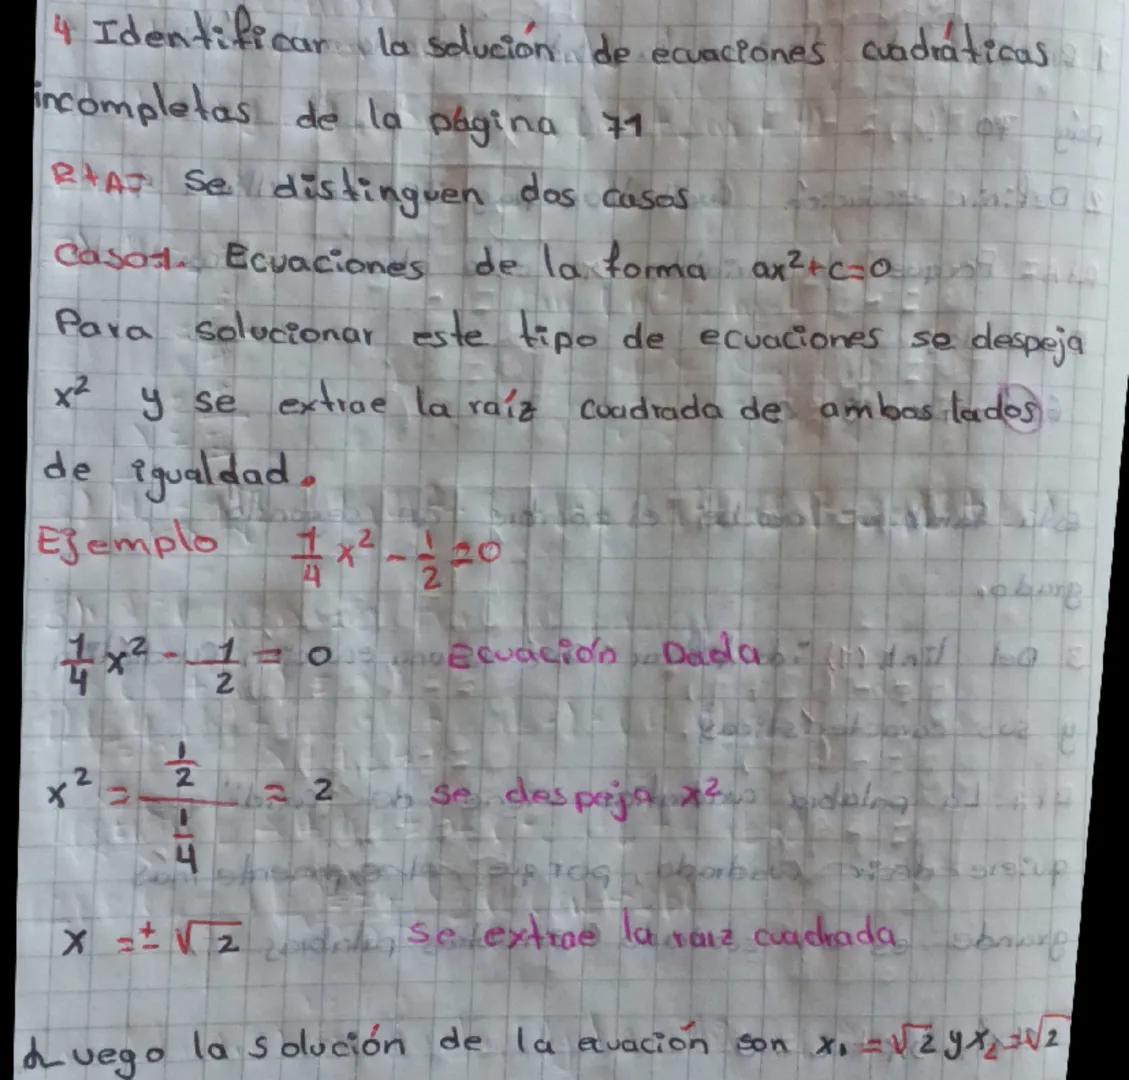 4 Identificar la solución de ecuaciones cuadráticas
incompletas de la página 71
RtA= Se distinguen dos casos
Caso1. Ecuaciones de la forma ax²+c=0
Para solucionar este tipo de ecuaciones se despeja
x² y se extrae la raíz cuadrada de ambos lados
de igualdad.
Ejemplo 1/4 x² - 1/2 = 0
1/4 x² - 1/2 = 0 Ecuación Dada
x² = (1/2)/(1/4) = 2 se despeja x²
x = ± √2 se extrae la raiz cuadrada
Luego la solución de la ecuación son x₁ = √2 y x₂ = √2